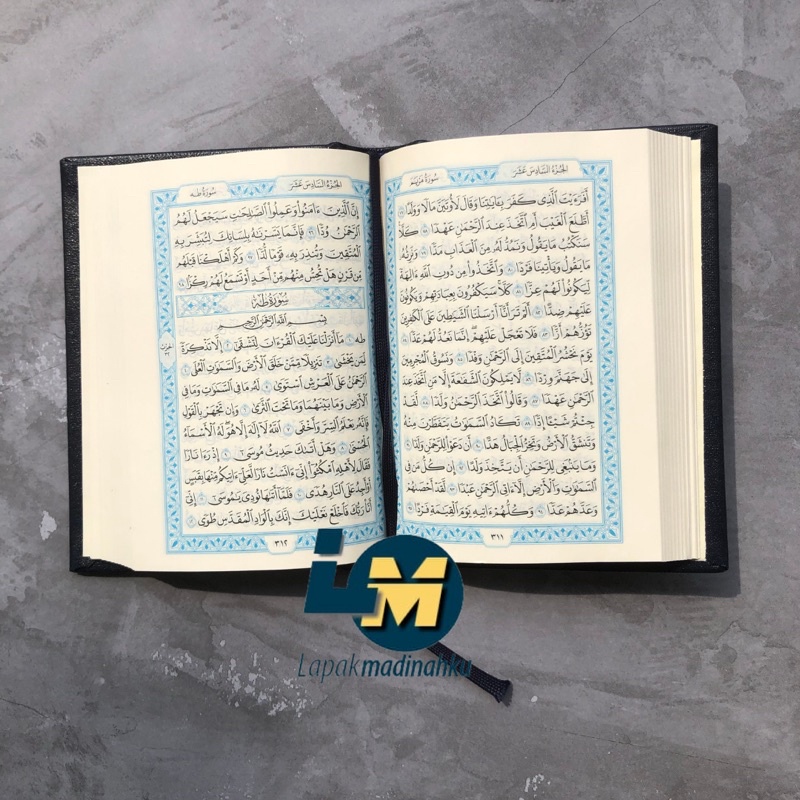 الجُزْءُ السَّادِسَ عَشَرَ سُورَةُ مَرْيَم
أَفَرَءَيْتَ الَّذِى كَفَرَ بِـَٔايَٰتِنَا وَقَالَ لَأُوتَيَنَّ مَالًا وَوَلَدًا ٧٧
أَطَّلَعَ الْغَيْبَ أَمِ اتَّخَذَ عِندَ الرَّحْمَٰنِ عَهْدًا ٧٨ كَلَّا
سَنَكْتُبُ مَا يَقُولُ وَنَمُدُّ لَهُۥ مِنَ الْعَذَابِ مَدًّا ٧٩ وَنَرِثُهُۥ
مَا يَقُولُ وَيَأْتِينَا فَرْدًا ٨٠ وَاتَّخَذُوا۟ مِن دُونِ اللَّهِ ءَالِهَةً
لِّيَكُونُوا۟ لَهُمْ عِزًّا ٨١ كَلَّا سَيَكْفُرُونَ بِعِبَادَتِهِمْ وَيَكُونُونَ
عَلَيْهِمْ ضِدًّا ٨٢ أَلَمْ تَرَ أَنَّآ أَرْسَلْنَا الشَّيَٰطِينَ عَلَى الْكَٰفِرِينَ
تَؤُزُّهُمْ أَزًّا ٨٣ فَلَا تَعْجَلْ عَلَيْهِمْ إِنَّمَا نَعُدُّ لَهُمْ عَدًّا ٨٤
يَوْمَ نَحْشُرُ الْمُتَّقِينَ إِلَى الرَّحْمَٰنِ وَفْدًا ٨٥ وَنَسُوقُ الْمُجْرِمِينَ
إِلَىٰ جَهَنَّمَ وِرْدًا ٨٦ لَّا يَمْلِكُونَ الشَّفَٰعَةَ إِلَّا مَنِ اتَّخَذَ عِندَ
الرَّحْمَٰنِ عَهْدًا ٨٧ وَقَالُوا۟ اتَّخَذَ الرَّحْمَٰنُ وَلَدًا ٨٨ لَّقَدْ
جِئْتُمْ شَيْـًٔا إِدًّا ٨٩ تَكَادُ السَّمَٰوَٰتُ يَتَفَطَّرْنَ مِنْهُ
وَتَنشَقُّ الْأَرْضُ وَتَخِرُّ الْجِبَالُ هَدًّا ٩٠ أَن دَعَوْا۟ لِلرَّحْمَٰنِ وَلَدًا ٩١
وَمَا يَنۢبَغِى لِلرَّحْمَٰنِ أَن يَتَّخِذَ وَلَدًا ٩٢ إِن كُلُّ مَن فِى
السَّمَٰوَٰتِ وَالْأَرْضِ إِلَّآ ءَاتِى الرَّحْمَٰنِ عَبْدًا ٩٣ لَّقَدْ أَحْصَىٰهُمْ
وَعَدَّهُمْ عَدًّا ٩٤ وَكُلُّهُمْ ءَاتِيهِ يَوْمَ الْقِيَٰمَةِ فَرْدًا ٩٥
٣١١
الجُزْءُ السَّادِسَ عَشَرَ سُورَةُ طه
إِنَّ الَّذِينَ ءَامَنُوا۟ وَعَمِلُوا۟ الصَّٰلِحَٰتِ سَيَجْعَلُ لَهُمُ
الرَّحْمَٰنُ وُدًّا ٩٦ فَإِنَّمَا يَسَّرْنَٰهُ بِلِسَانِكَ لِتُبَشِّرَ بِهِ
الْمُتَّقِينَ وَتُنذِرَ بِهِۦ قَوْمًا لُّدًّا ٩٧ وَكَمْ أَهْلَكْنَا قَبْلَهُم
مِّن قَرْنٍ هَلْ تُحِسُّ مِنْهُم مِّنْ أَحَدٍ أَوْ تَسْمَعُ لَهُمْ رِكْزًۢا ٩٨
سُورَةُ طه
بِسْمِ اللَّهِ الرَّحْمَٰنِ الرَّحِيمِ
طه ١ مَآ أَنزَلْنَا عَلَيْكَ الْقُرْءَانَ لِتَشْقَىٰٓ ٢ إِلَّا تَذْكِرَةً
لِّمَن يَخْشَىٰ ٣ تَنزِيلًا مِّمَّنْ خَلَقَ الْأَرْضَ وَالسَّمَٰوَٰتِ الْعُلَى ٤
الرَّحْمَٰنُ عَلَى الْعَرْشِ اسْتَوَىٰ ٥ لَهُۥ مَا فِى السَّمَٰوَٰتِ وَمَا فِى
الْأَرْضِ وَمَا بَيْنَهُمَا وَمَا تَحْتَ الثَّرَىٰ ٦ وَإِن تَجْهَرْ بِالْقَوْلِ
فَإِنَّهُۥ يَعْلَمُ السِّرَّ وَأَخْفَى ٧ اللَّهُ لَآ إِلَٰهَ إِلَّا هُوَ لَهُ الْأَسْمَآءُ
الْحُسْنَىٰ ٨ وَهَلْ أَتَىٰكَ حَدِيثُ مُوسَىٰٓ ٩ إِذْ رَءَا نَارًا
فَقَالَ لِأَهْلِهِ امْكُثُوٓا۟ إِنِّىٓ ءَانَسْتُ نَارًا لَّعَلِّىٓ ءَاتِيكُم مِّنْهَا بِقَبَسٍ
أَوْ أَجِدُ عَلَى النَّارِ هُدًى ١٠ فَلَمَّآ أَتَىٰهَا نُودِىَ يَٰمُوسَىٰٓ ١١ إِنِّىٓ
أَنَا۠ رَبُّكَ فَاخْلَعْ نَعْلَيْكَ إِنَّكَ بِالْوَادِ الْمُقَدَّسِ طُوًى ١٢
٣١٢
LM
Lapakmadinahku